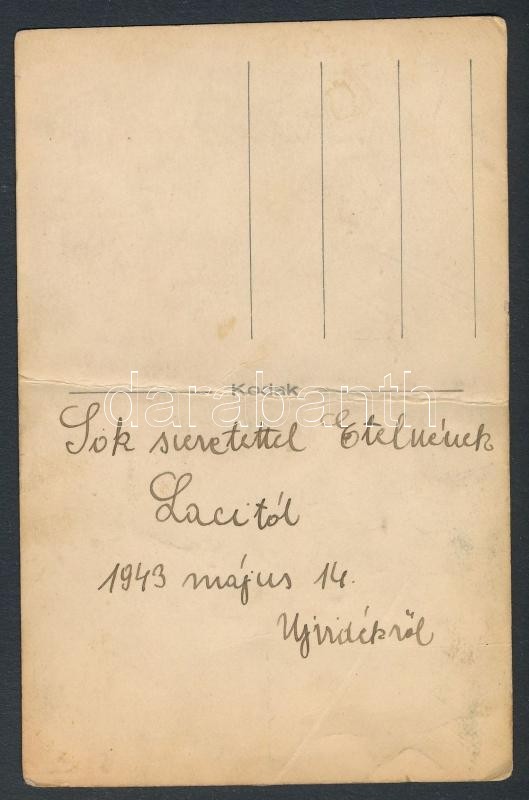 Kodak
darabanth
Sok szeretettel Etelnének
Lacitól
1943 május 14.
Ujvidékről